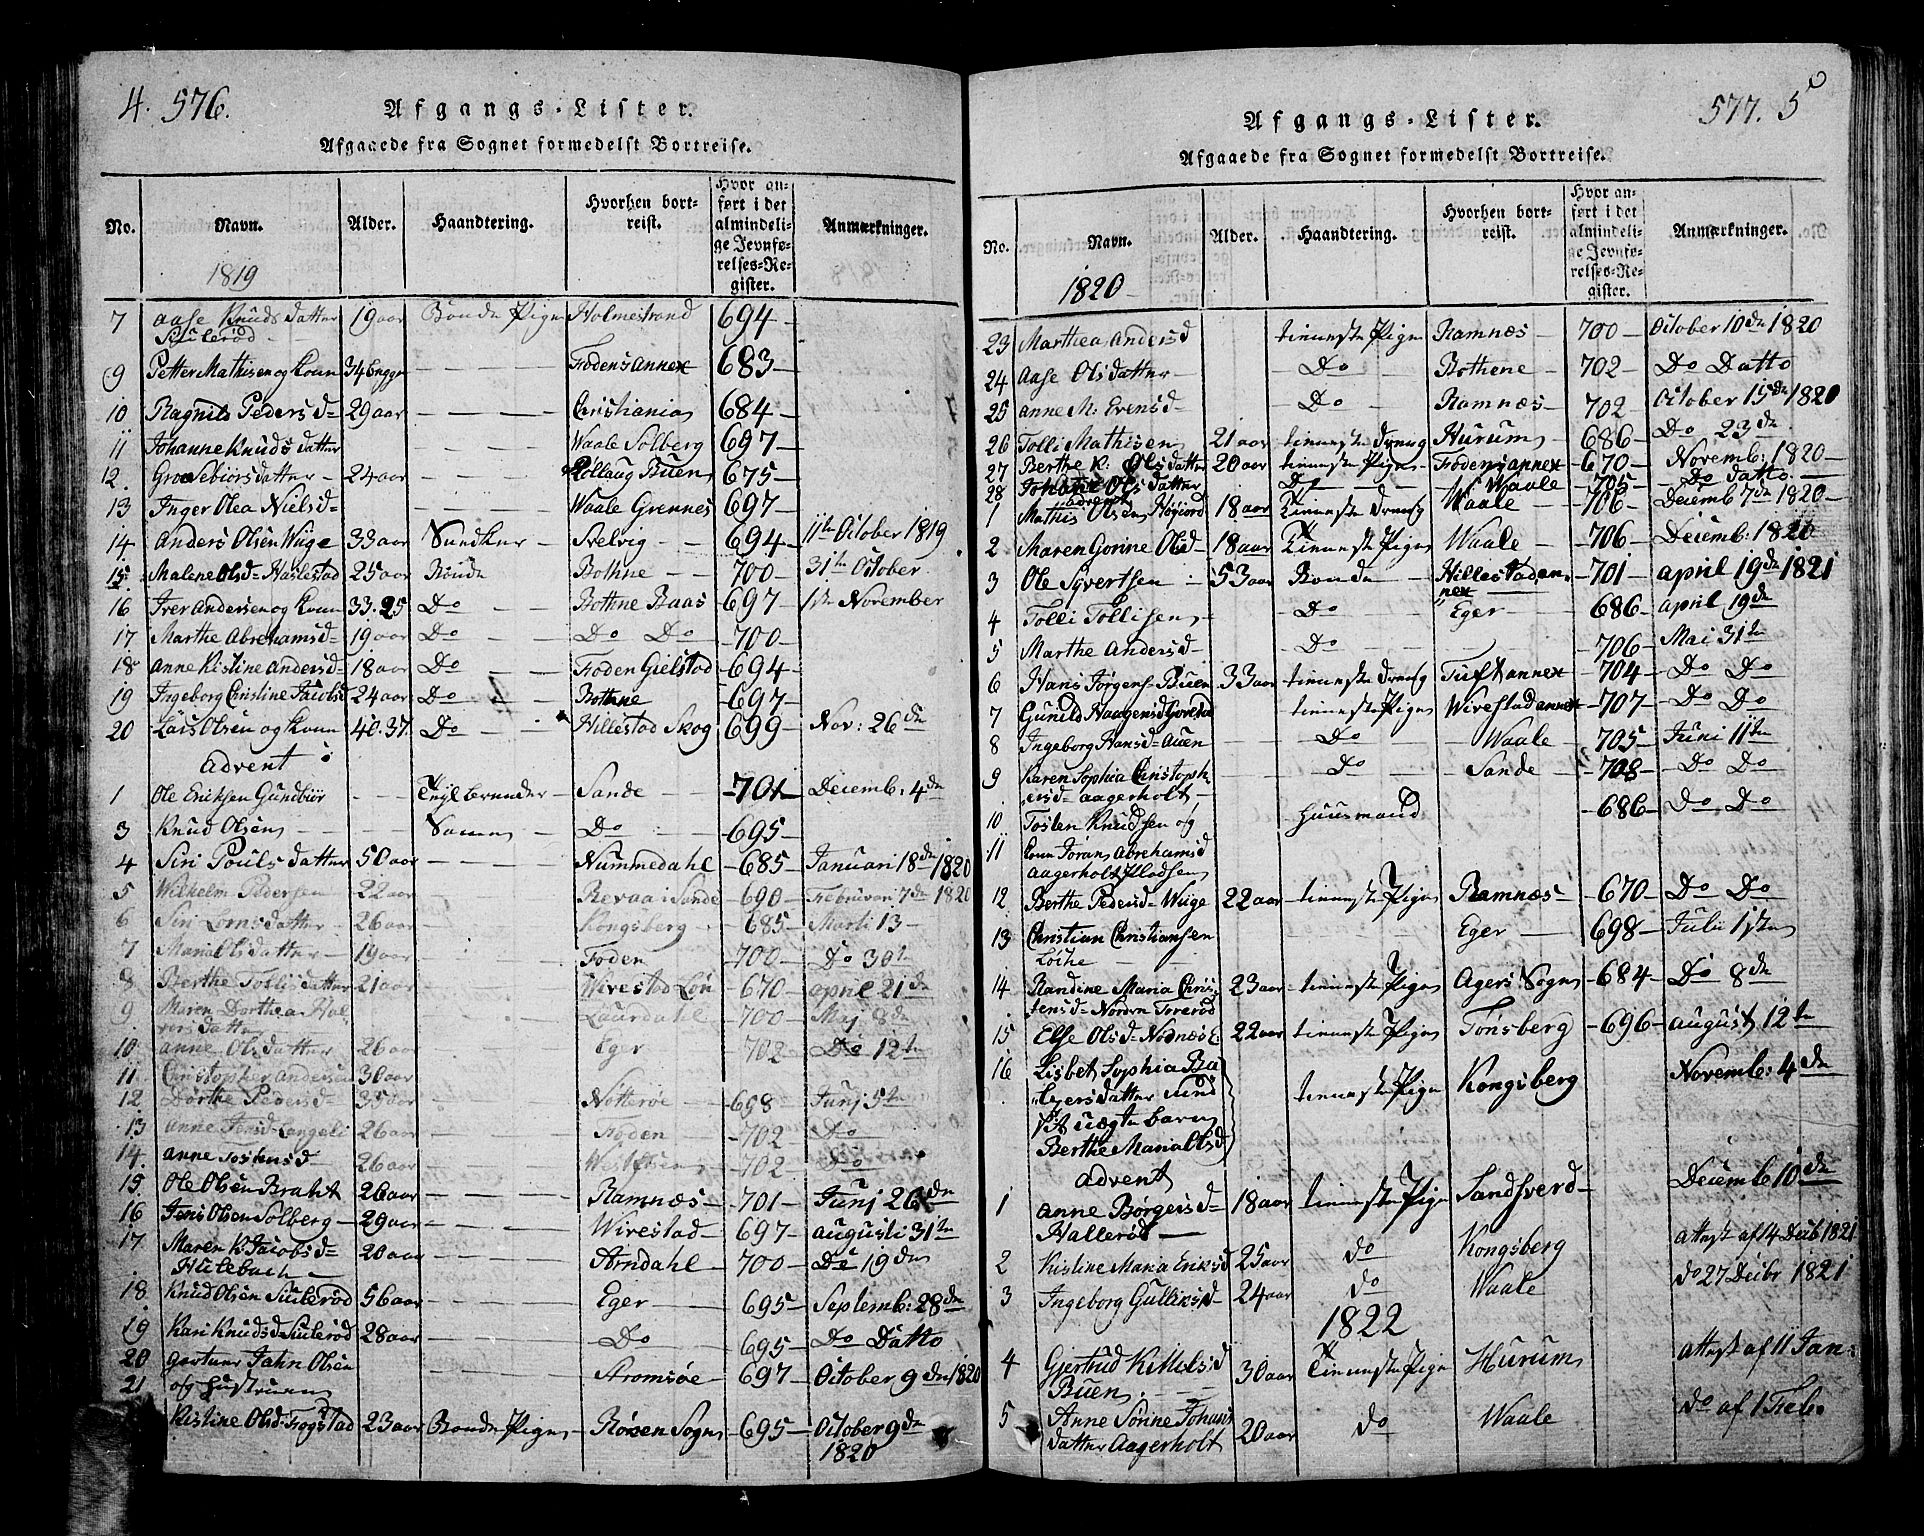 4. 576.
Afgangs-Lister.
Afgaaede fra Sognet formedelst Bortreise.
No. Navn. Alder. Haandtering. Hvorhen bortreist. Hvor anført i det almindelige Jevnførelses-Register. Anmærkninger.
1819
7 Aase Knuds datter 19 aar Bonde Pige Holmestrand 694
9 Petter Mathisen og Kone 34 begge Fodens Annex 683
10 Ragnild Peders d 29 aar Christiania 684
11 Johanne Knuds datter Waale Solberg 697
12. Groe datter 24 aar Buen 675
13 Inger Olea Niels d Waale Grennes 697
14 Anders Olsen Wiige 33 aar Svelvig 694 11te October 1819
15. Malene Ols d Haslestad 25 aar Bonde Bothne 700 31te October
16 Iver Andersen og Kone 33. 25 Do Bothne Baas 697 1ste November
17. Marthe Abrahams d 19 aar Do Do Do 700
18 Anne Kistine Anders d 18 aar Do Foden Gielstad 694
19 Ingeborg Christine Jacobs d 24 aar Do Bothne 697
20 Lars Olsen og Kone 40. 37. Do Hillestad Skog 699 Nov: 26de
Advent
1 Ole Eriksen Gundbiør Sande 701 Decemb: 4de
3 Knud Olsen Samme Do 695
4 Siri Pouls datter 50 aar Nummedahl 685 Januari 18de 1820
5 Wilhelm Pedersen 22 aar Revaa i Sande 690 Februari 7de 1820
6 Siri Lorns datter 26 aar Kongsberg 685 Marti 13
7 Maria Ols datter 19 aar Foden 700 Do 30te
8 Berthe Tollis datter 21 aar Wirestad 670 April 21de
9 Maren Dorthea Halvors datter Laurdahl 700 Maj 8de
10 Anne Ols datter 26 aar Eger 702 Do 12te
11 Christopher Andersen 30 aar
12 Dorthe Peders d 35 aar Nøtterøe 698 Junj 5te
13 Anne Jens d Langeli 26 aar Foden 702 Do
14. Anne Tostens d 26 aar 702 Do
15. Ole Olsen Braht 26 aar Ramnæs 701 Junj 26de
16 Jens Olsen Solberg 29 aar Wirestad 697 Augusti 31te
17. Maren K Jacobs d Hulebach 20 aar Arndahl 700 Do 19de
18 Knud Olsen Sulerød 56 aar Eger 695 Septemb: 28de
19 Kari Knuds d Sulerød 28 aar Do 695 Do Datto
20 Gartner John Olsen
21 og Hustrue Strømsøe 697 October 9de 1820
Kistine Ols d Fogstad 23 aar Bonde Pige Røken Sogn 695 October 9de
1820
577. 5
Afgangs-Lister.
Afgaaede fra Sognet formedelst Bortreise.
No. Navn. Alder. Haandtering. Hvorhen bortreist. Hvor anført i det almindelige Jevnførelses-Register. Anmærkninger.
1820
23 Marthea Anders d tieneste Pige Ramnæs 700 October 10de 1820
24 Aase Ols datter Do Bothene 702 Do Datto
25 Anne M: Evens d Do Ramnæs 702 October 15de 1820
26 Tolli Mathisen 21 aar tieneste Dreng Hurum 686 Do 23de
27 Berthe K: Ols datter 20 aar tieneste Pige Fodens annex 670 Novemb: 1820
28 Johanne Ols datter Do Waale 705 Do Datto
Advent
1 Mathis Olsen Høijord 18 aar Tieneste Dreng Waale 706 Decemb 7de 1820
2 Maren Gorine Ols d 18 aar Tieneste Pige Waale 706 Decemb: 1820
3 Ole Syvertsen 53 aar Bonde Hillestad annex 701 April 19de 1821
4 Tolli Tollisen Do Eger 686 April 19de
5 Marthe Anders d Do 706 Mai 31te
6 Hans Jørgens Buen 33 aar tieneste Dreng Tuft annex 704 Do Do
7 Gunild Haagens d tieneste Pige Wirestad annex 707 Do Do
8 Ingeborg Hans d Auen Do Waale 705 Juni 11te
9 Karen Sophia Christophers d Aagerholt Do Sande 708 Do Do
10 Tosten Knudsen og Huusmand 686 Do Do
11 Kone Joran Abrahams d
Aagerholt
12 Berthe Peders d Wiige 22 aar tieneste Pige Ramnæs 670 Do Do
13 Christian Christiansen Eger 698 Juli 1ste
14 Randine Maria Christens d Nordre Torerød 23 aar tieneste Pige Agers Sogn 684 Do 8de
15 Else Ols d Nødnæs 22 aar tieneste Pige Tønsberg 696 August 12te
16 Lisbet Sophia datter med
sit uægte barn tieneste Pige Kongsberg Novemb: 4de
Berthe Maria Ols d
Advent
1 Anne Børgers d Hallerød 18 aar tieneste Pige Sandsverd Decemb 10de
2 Kistine Maria Eriks d 25 aar do Kongsberg attest af 14 Decb 1821
3 Ingeborg Gulliks d 24 aar do Waale do 27 Decbr 1821
1822
4 Gjertrud Kittels d Buen 30 aar Tieneste Pige Hurum attest af 11 Jan:
5 Anne Sørine Johans datter Aagerholt 20 aar do Waale do af 1 Feb.